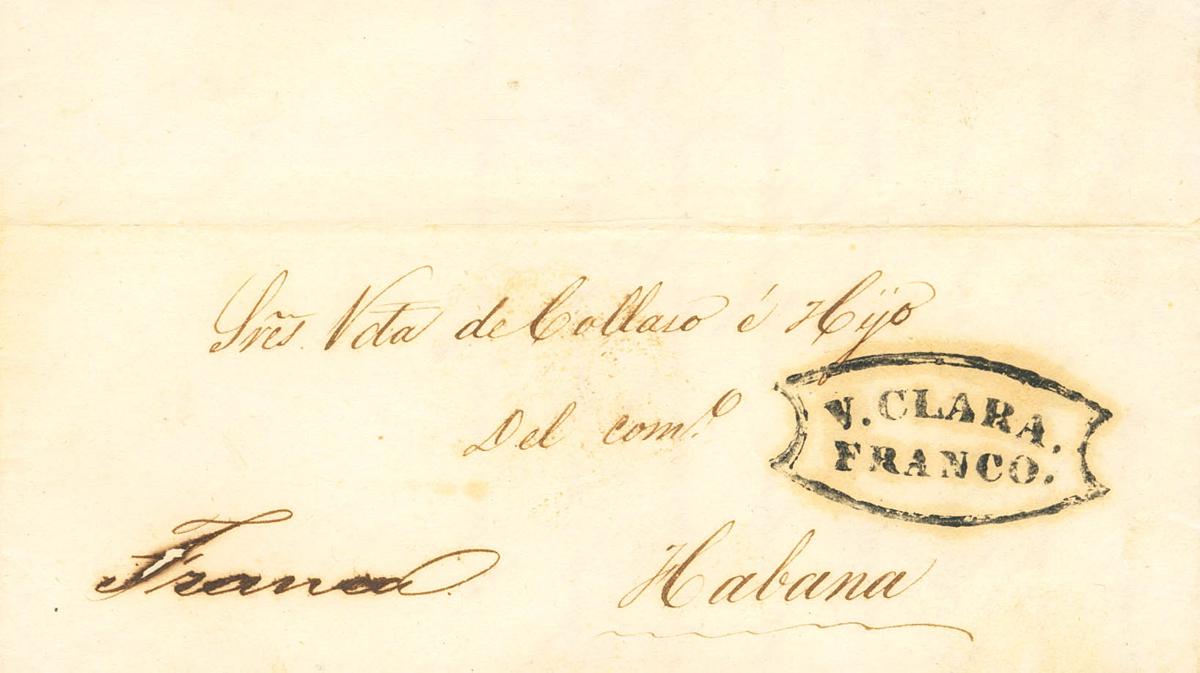 Sres. Vda de Collaso é Hijo
Del com.o
V. CLARA.
FRANCO.
Franca
Habana